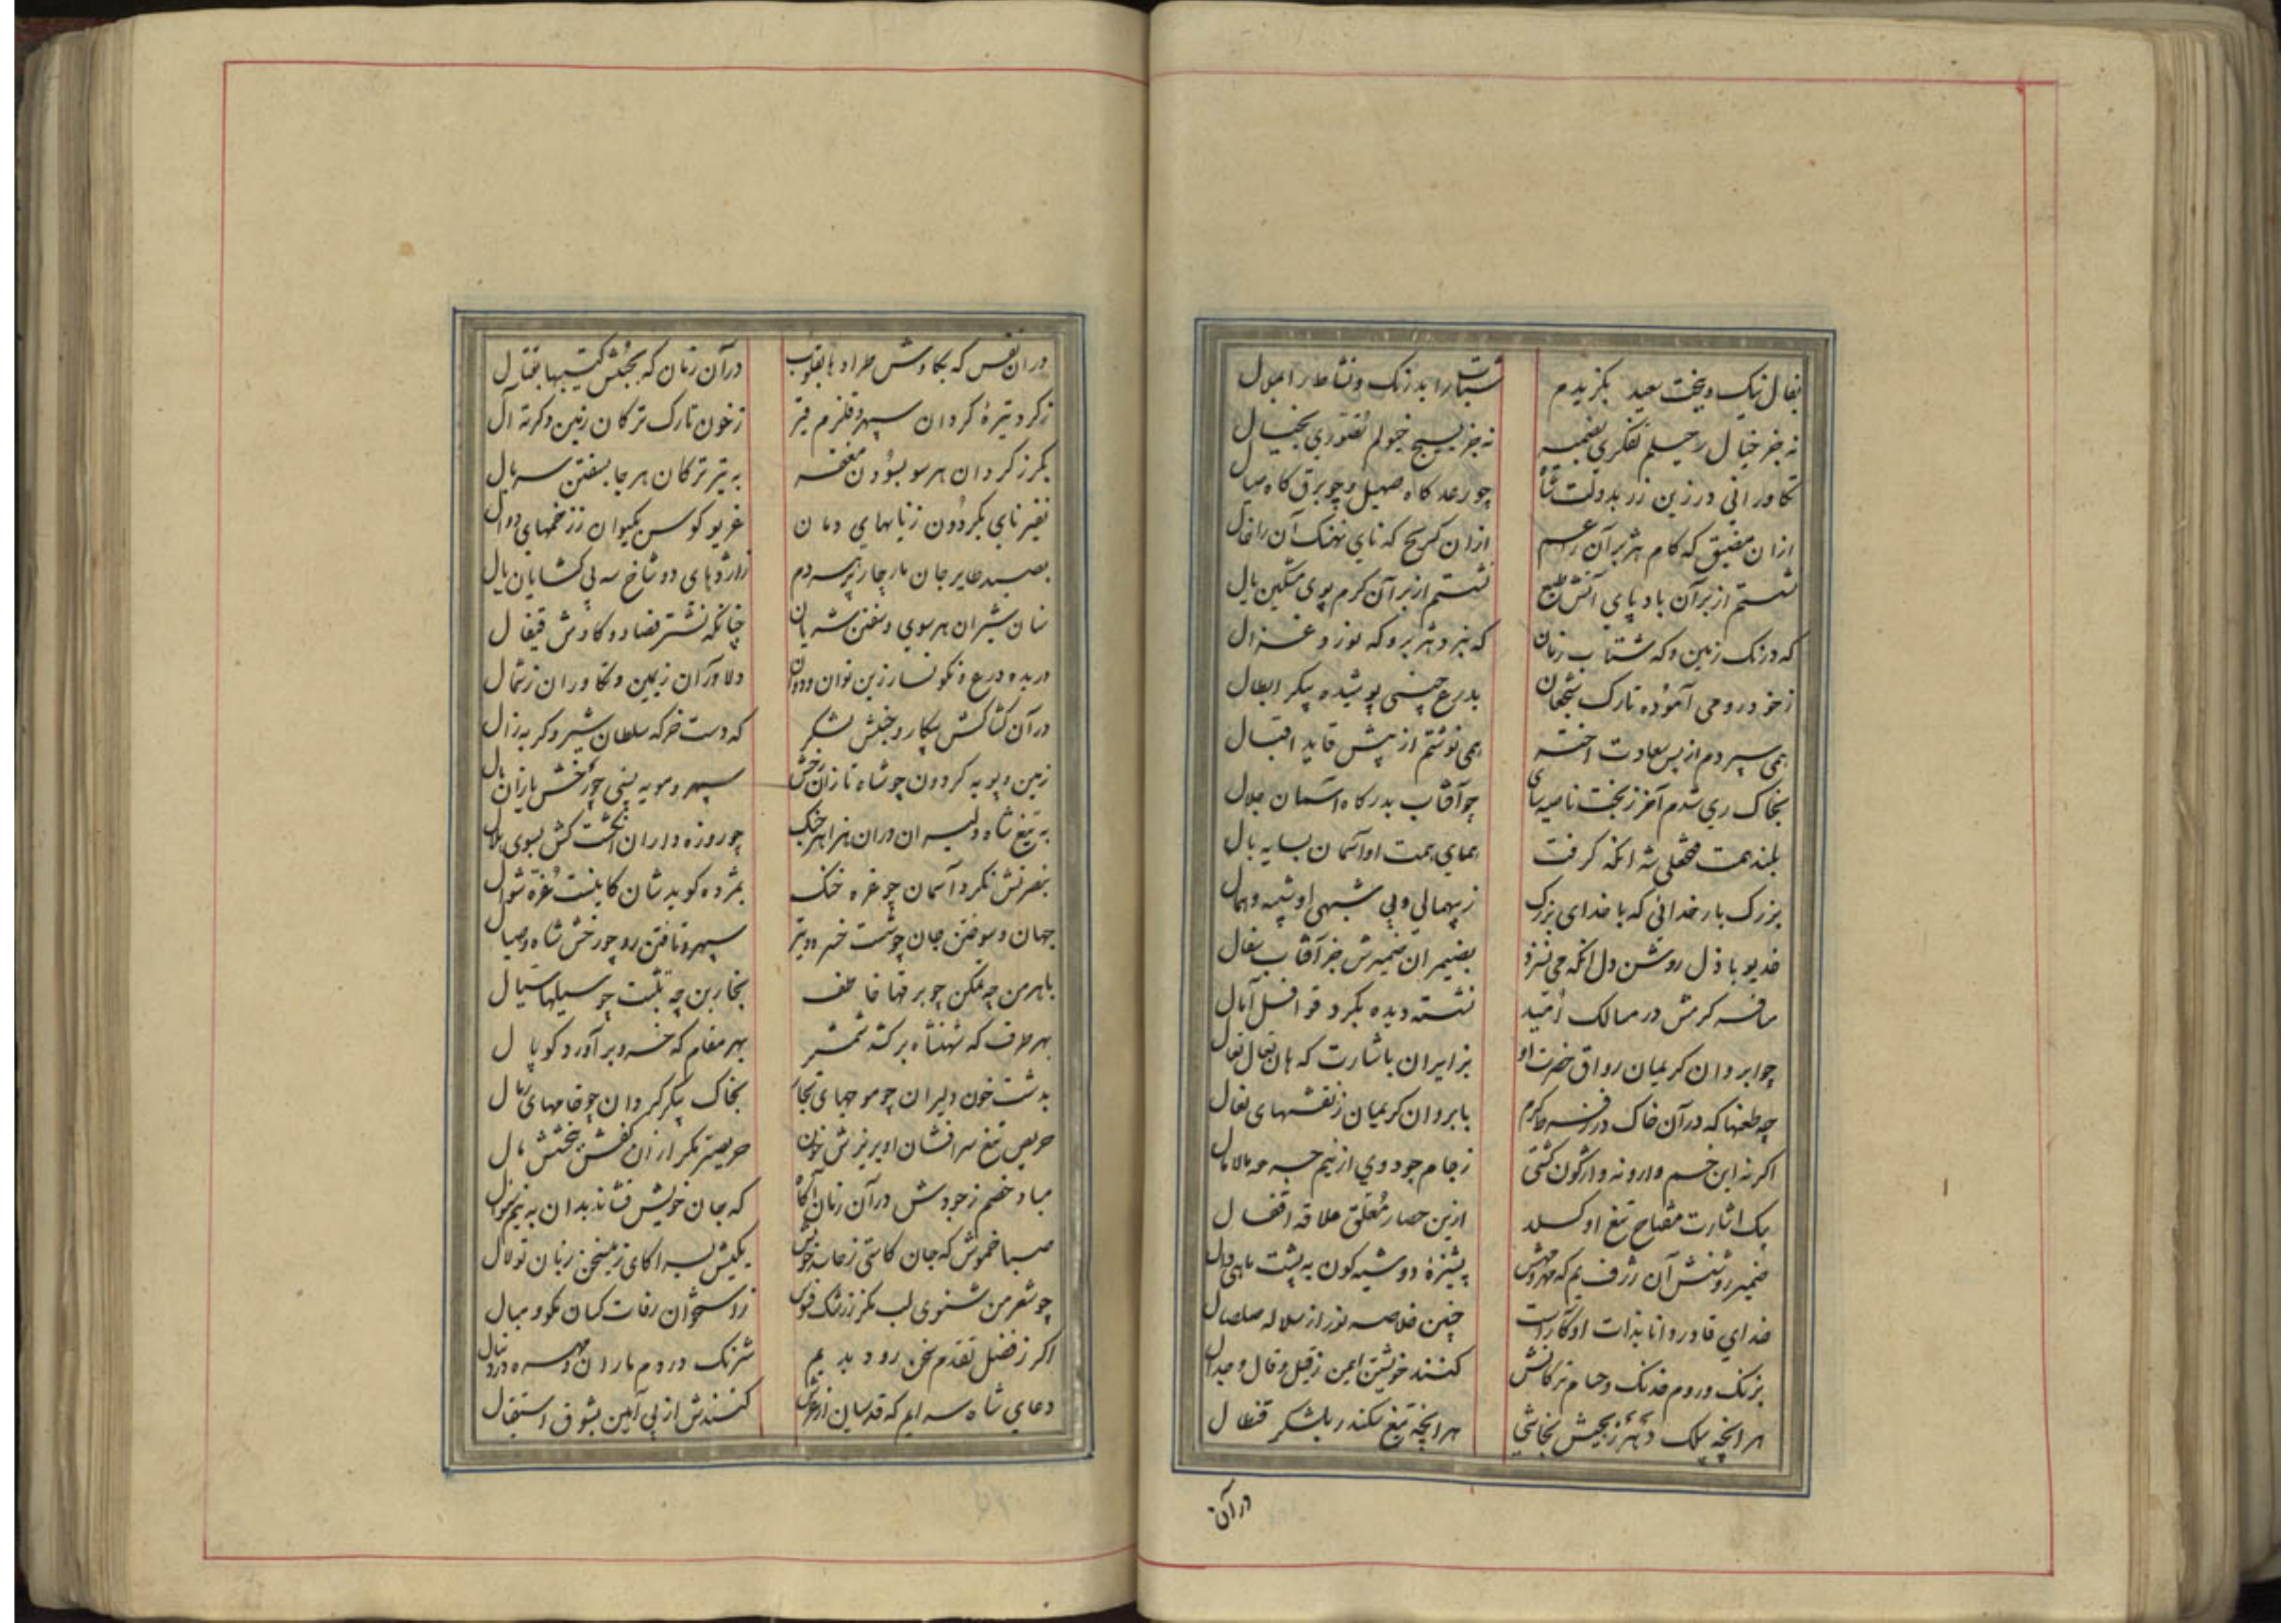 بفال نیک و بخت سعید بکزیدم شتاب را بدرنک و نشاط را بملال
نه جز خیال رحیلم تفکری بضمیر نه جز بسیج خیولم تصوری بخیال
تکاورانی در زین زر بدولت شاه چو رعد کاه صهیل و چو برق کاه صیال
ازان مضیق که کام هژبر آن را عم ازان کریح که نای نهنک آن را خال
نشستم از بر آن باد پای آتش طبع نشستم از بر آن کرم پوی مشکین یال
که درنک زمین و که شتاب زمان که نبرد هژبر و که نورد غزال
ز خود رومی آموده تارک شجعان بدرع چینی پوشیده پیکر ابطال
همی سپردم از پس سعادت اختر همی نوشتم از پیش قاید اقبال
بخاک ری شدم آخر ز بخت ناصیه سای چو آفتاب بدرکاه آسمان جلال
بلند همت محمدعلی شه آنکه کرفت همای همت او آسمان بسایه بال
بزرک بار خدائی که با خدای بزرک ز بیهمالی و بی شبهی او شبیه و همال
خدیو باذل روشن دل آنکه می نسزد بضیمران ضمیرش جز آفتاب سفال
مسافر کرمش در ممالک امید نشسته دیده بکرد قوافل آمال
چو ابروان کریمان رواق حضرت او بزایران باشارت که هان تعال تعال
چه طعنها که در آن خاک در فزون کرم بابروان کریمان ز نقشهای نعال
اکر نه این خم وارونه وارکون کشتی ز جام جود وی از نیم جرعه مالامال
بیک اشارت مفتاح تیغ او کسلد ازین حصار معلق علاقه اقفال
ضمیر روشنش آن ژرف یم که مهر و مهش پشیزه دو شبه کون به پشت ماهی دال
خدای قادر دانا بذات او آراست چنین خلاصه نور از سلاله صلصال
بزنک و روم خدنک و حسام ترکانش کنند خویشتن ایمن ز قیل و قال و جدال
هر انچه بیلک ز جیش نجاشی هر انچه تیغ سکندر بلشکر قنطال
در آن
دران نفس که بکاوش طرادها بقلوب در آن زمان که بجنبش کتیبها بقتال
ز کرد تیره کردان سپهر و قلزم قیر ز خون تارک ترکان زمین و کرته آل
بکرز کردان هر سو بسودن مغفر به تیر ترکان هر جا بسفتن سربال
نفیر نای بکردون ز نایهای دمان غریو کوس بکیوان ز زخمهای دوال
بصید طایر جان مار چار پر سردم ز اژدهای دو شاخ سه پی کشایان بال
سنان شیران هر سوی و سفتن شریان چنانکه نشتر فصاد و کاوش قیفال
دریده درع و نکونسار زین نوان و دوان دلاوران ز یمین و تکاوران ز شمال
در آن کشاکش پیکار و جنبش لشکر که دست خرکه سلطان شیر و کربه زال
زمین و پویه کردون چو شاه تازان رخش سپهر و مویه بینی چو رخش یازان یال
به تیغ شاه دلیران دران هزاهز جنک چو روزه داران انکشت کش بسوی هلال
بنصرتش نکرد آسمان چو غره خنک بمژده کوید شان کاینست غره شوال
جهان و سوختن جان چو شست خسرو و تیر سپهر و تافتن رو چو رخش شاه و صیال
باهرمن چه ممکن چو برقها خاطف بخار بن چه تثبت چو سیلها سیال
بهر طرف که شهنشاه برکشد شمشیر بهر مقام که خسرو برآورد کوپال
بدشت خون دلیران چو موجهای بحار بخاک پیکر کردان چو خامهای رمال
حریص تیغ سرافشان او بریزش خون حریصتر مکر از آن کفش ببخشش مال
مباد خصم ز جودش در آن زمان آکاه که جان خویش فشاند بدان به نیم سوال
صبا خموش که جان کاستی ز خامه خویش یکیش بسر آ کای ز سخن زبان تو لال
چو شعر من شنوی لب مکز ز رشک فزون ز استخوان رفات کسان مکو و مبال
اکر ز فضل تقدم سخن رود بدیم شرنک در دم ماران و مهره در دنبال
دعای شاه سرایم که قدسیان از عرش کنندش از پی آمین بشوق استقبال